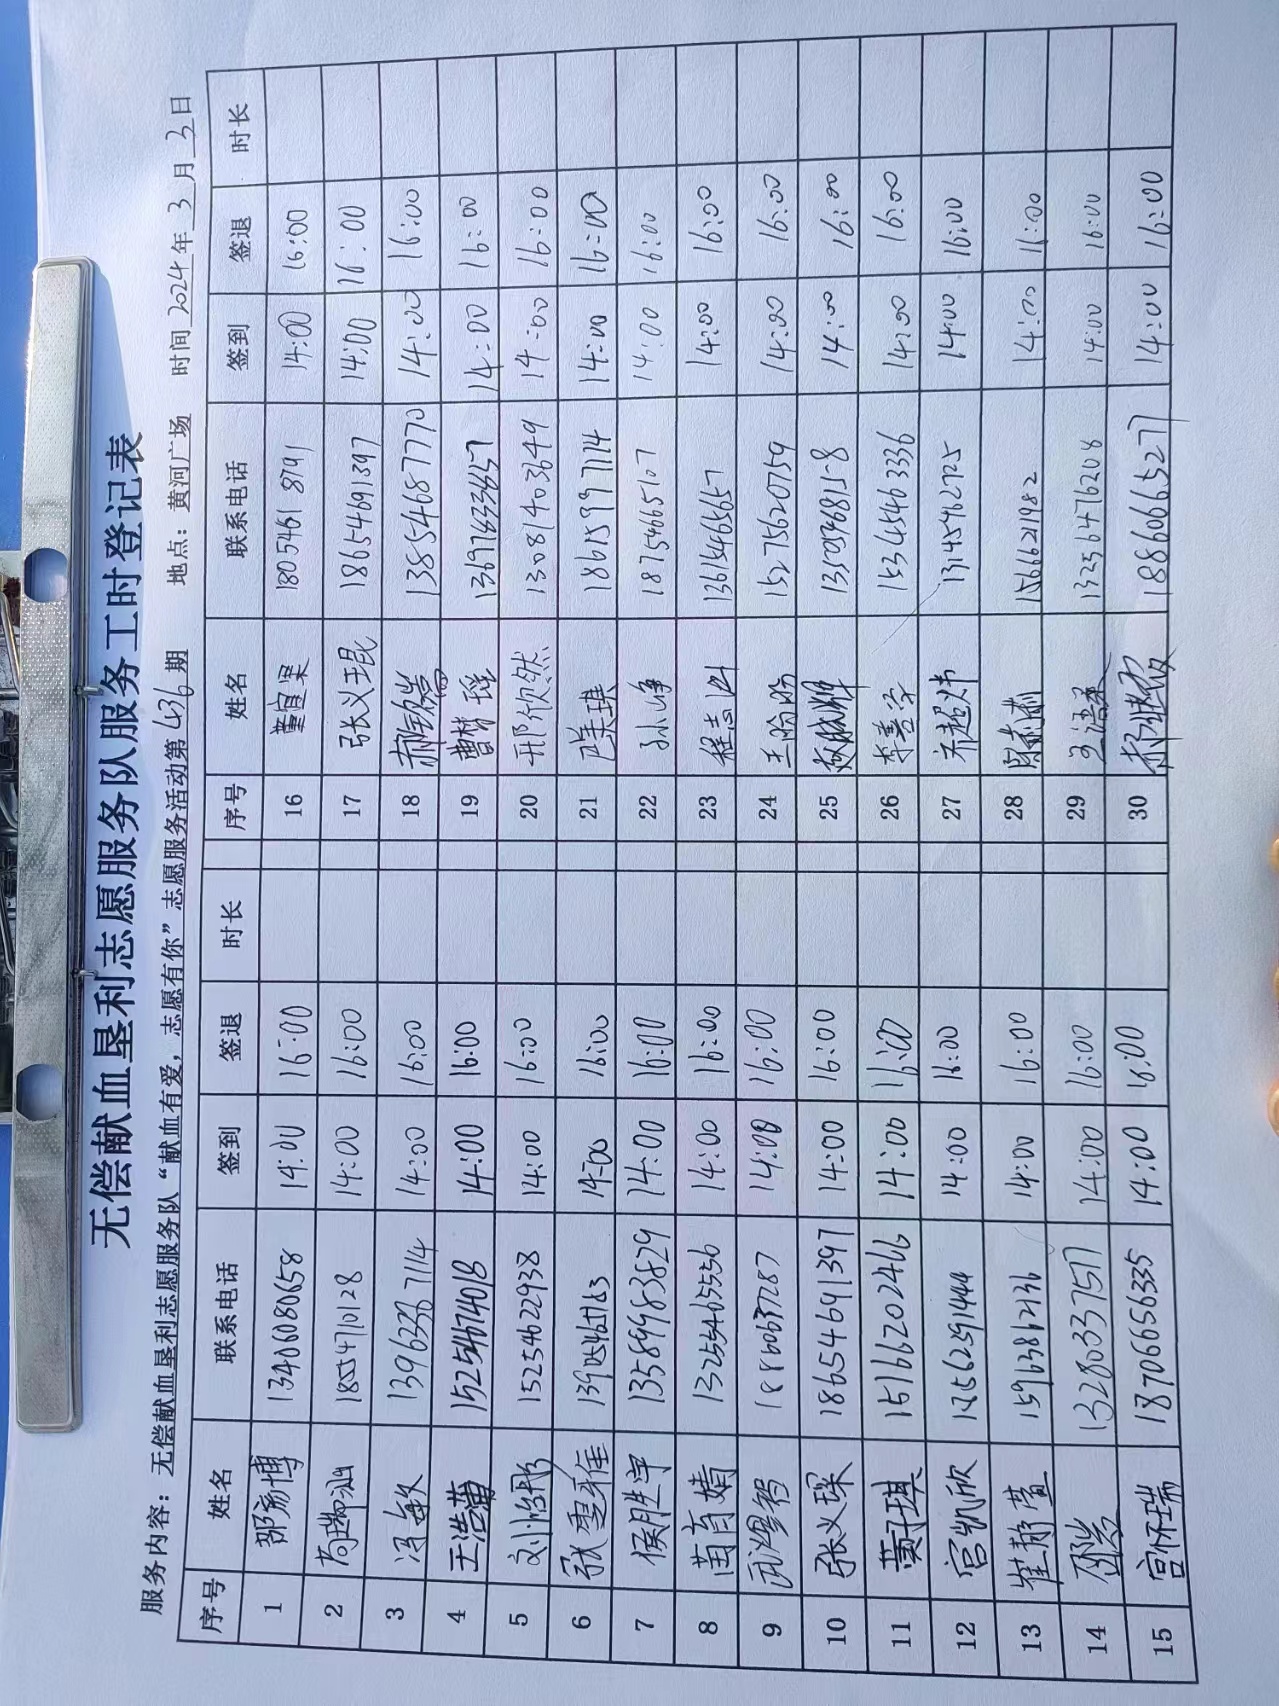 无偿献血垦利志愿服务队服务工时登记表
服务内容：无偿献血垦利志愿服务队“献血有爱，志愿有你”志愿服务活动第436期 地点：黄河广场 时间 2024年3月3日
序号 姓名 联系电话 签到 签退 时长 序号 姓名 联系电话 签到 签退 时长
1 13406080658 14:00 16:00 16 董宜果 18054618791 14:00 16:00
2 18554710128 14:00 16:00 17 张义琨 18654691397 14:00 16:00
3 冯敏 13963367114 14:00 16:00 18 13854687770 14:00 16:00
4 王浩蒲 15254674018 14:00 16:00 19 曹梦瑶 14:00 16:00
5 刘怡彤 15254622938 14:00 16:00 20 邢欣然 13081403649 14:00 16:00
6 张墨雅 14:00 16:00 21 18615997114 14:00 16:00
7 侯胜宇 13589983829 14:00 16:00 22 孙净 18754665107 14:00 16:00
8 苗育婧 13255465556 14:00 16:00 23 程志 13615465657 14:00 16:00
9 14:00 16:00 24 王盼盼 15275620759 14:00 16:00
10 张义琛 18654691397 14:00 16:00 25 14:00 16:00
11 黄琪 15166202466 14:00 16:00 26 李善学 15345463336 14:00 16:00
12 宫凯欣 14:00 16:00 27 乔超伟 14:00 16:00
13 崔静萱 15963862136 14:00 16:00 28 15666621982 14:00 16:00
14 13280337517 14:00 16:00 29 王浩 13256476208 14:00 16:00
15 宫怀瑞 18706656335 14:00 16:00 30 18860665271 14:00 16:00